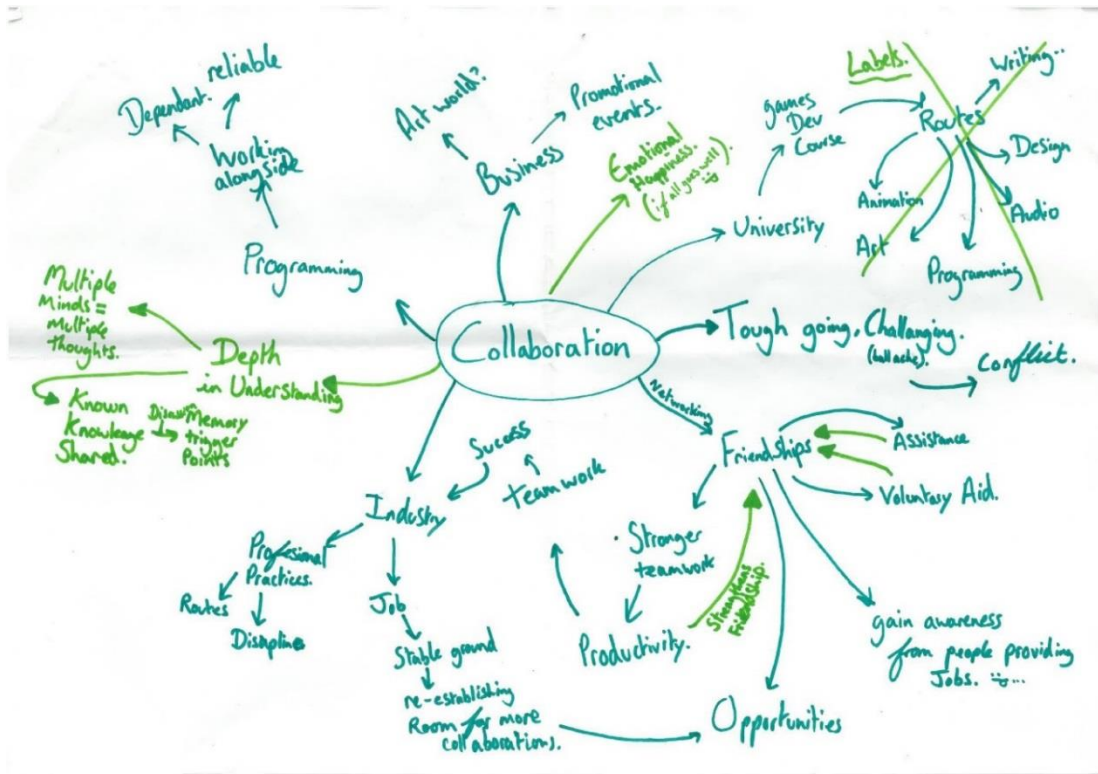 Collaboration
Programming
Working
alongside
Dependant.
reliable
Business
Art world?
Promotional
events.
Emotional
Happiness.
(if all goes well).
University
games
Dev
Course
Labels.
Routes
Writing..
Design
Audio
Programming
Art
Animation
Tough going. Challanging.
Conflict.
Networking
Friendships
Assistance
Voluntary Aid.
gain awareness
from people providing
Jobs.
Opportunities
Stronger
teamwork
Productivity.
Strengthens
Friendship.
teamwork
Success
Industry
Profesional
Practices.
Routes
Discipline
Job
Stable ground
re-establishing
Room for more
collaborations.
Depth
in Understanding
Multiple
Minds =
Multiple
thoughts.
Known
Knowledge
Shared.
Memory
trigger
Points